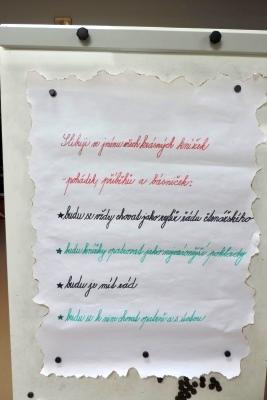 Slibuji ve jménu všech krásných knížek
pohádek, příběhů a básniček:
★ budu se vždy chovat jako rytíř řádu čtenářského
★ budu knížky opatrovat jako nejvzácnější poklady
★ budu je mít rád
★ budu se k nim chovat opatrně a s úctou